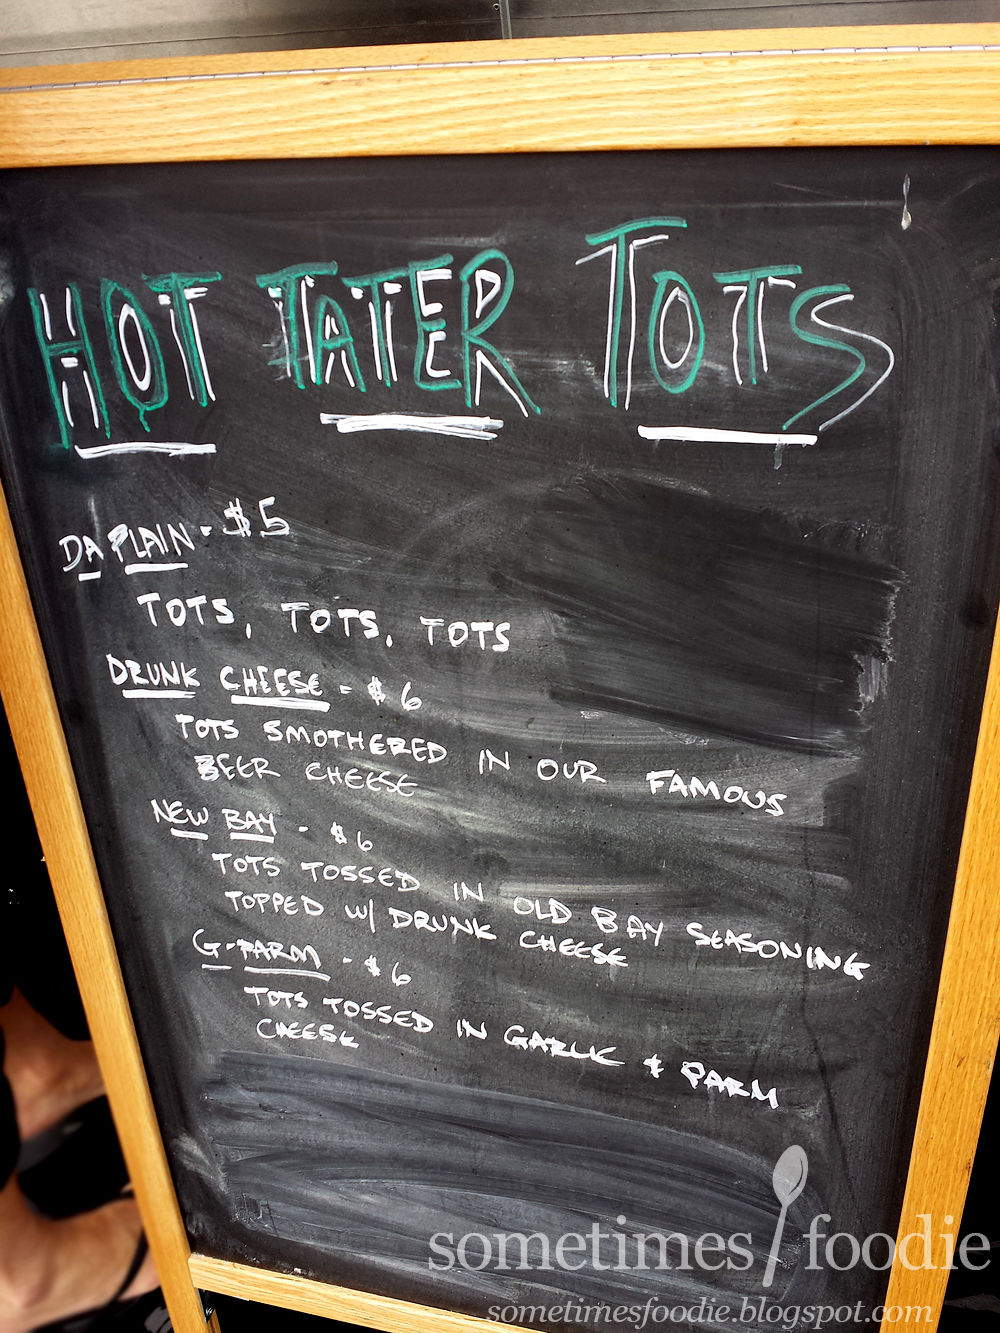 HOT TATER TOTS
DA PLAIN - $5
TOTS, TOTS, TOTS
DRUNK CHEESE - $6
TOTS SMOTHERED IN OUR FAMOUS
BEER CHEESE
NEW BAY - $6
TOTS TOSSED IN OLD BAY SEASONING
TOPPED W/ DRUNK CHEESE
G-PARM - $6
TOTS TOSSED IN GARLIC & PARM
CHEESE
sometimes foodie
sometimesfoodie.blogspot.com